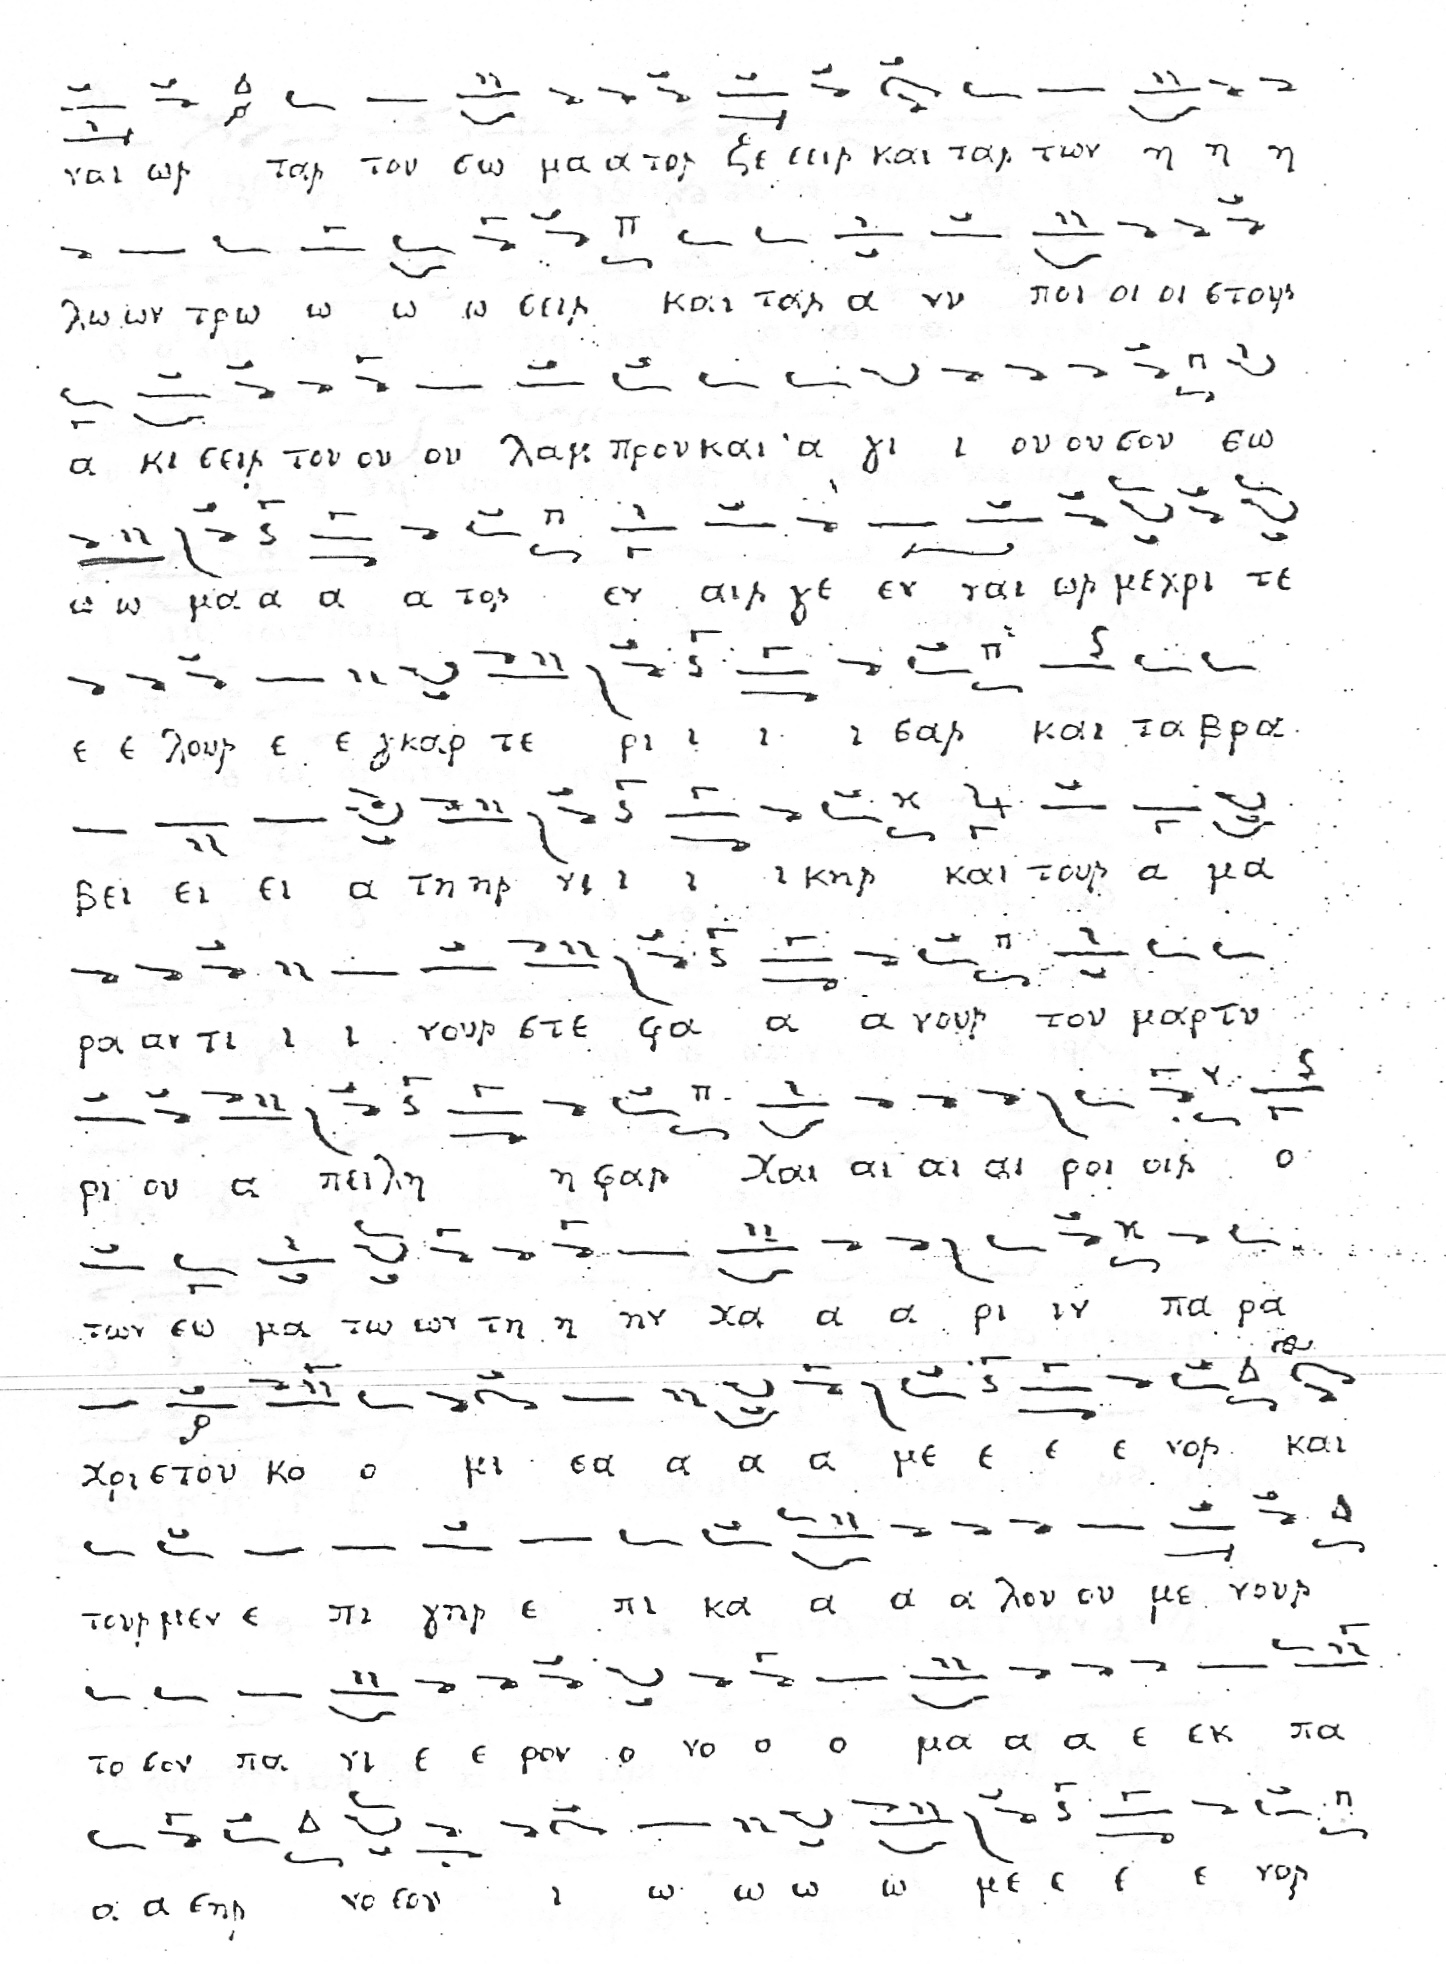 ναι ως τας του σω μα α τος ξε σεις και τας των η η η
λω ων τρω ω ω ω σεις και τας α νυ ποι οι οι στους
α κι σεις του ου ου λαμ πρου και α γι ι ου ου σου σω
ω ω μα α α α τος εν αις γε εν ναι ως μεχρι τε
ε ε λους ε ε γκαρ τε ρι ι ι ι σας και τα βρα
βει ει ει α τη ης νι ι ι ι κης και τους α μα
ρα αν τι ι ι νους στε φα α α νους του μαρτυ
ρι ου α πειλη η φας χαι αι αι αι ροι οις ο
των σω μα τω ων τη η ην χα α α ρι ιν πα ρα
χριστου κο ο μι σα α α α με ε ε ε νος και
τους μεν ε πι γης ε πι κα α α α λου ου με νους
το σον πα νι ε ε ρον ο νο ο ο μα α α ε εκ πα
α α σης νο σου ι ω ω ω ω με ε ε ε νος